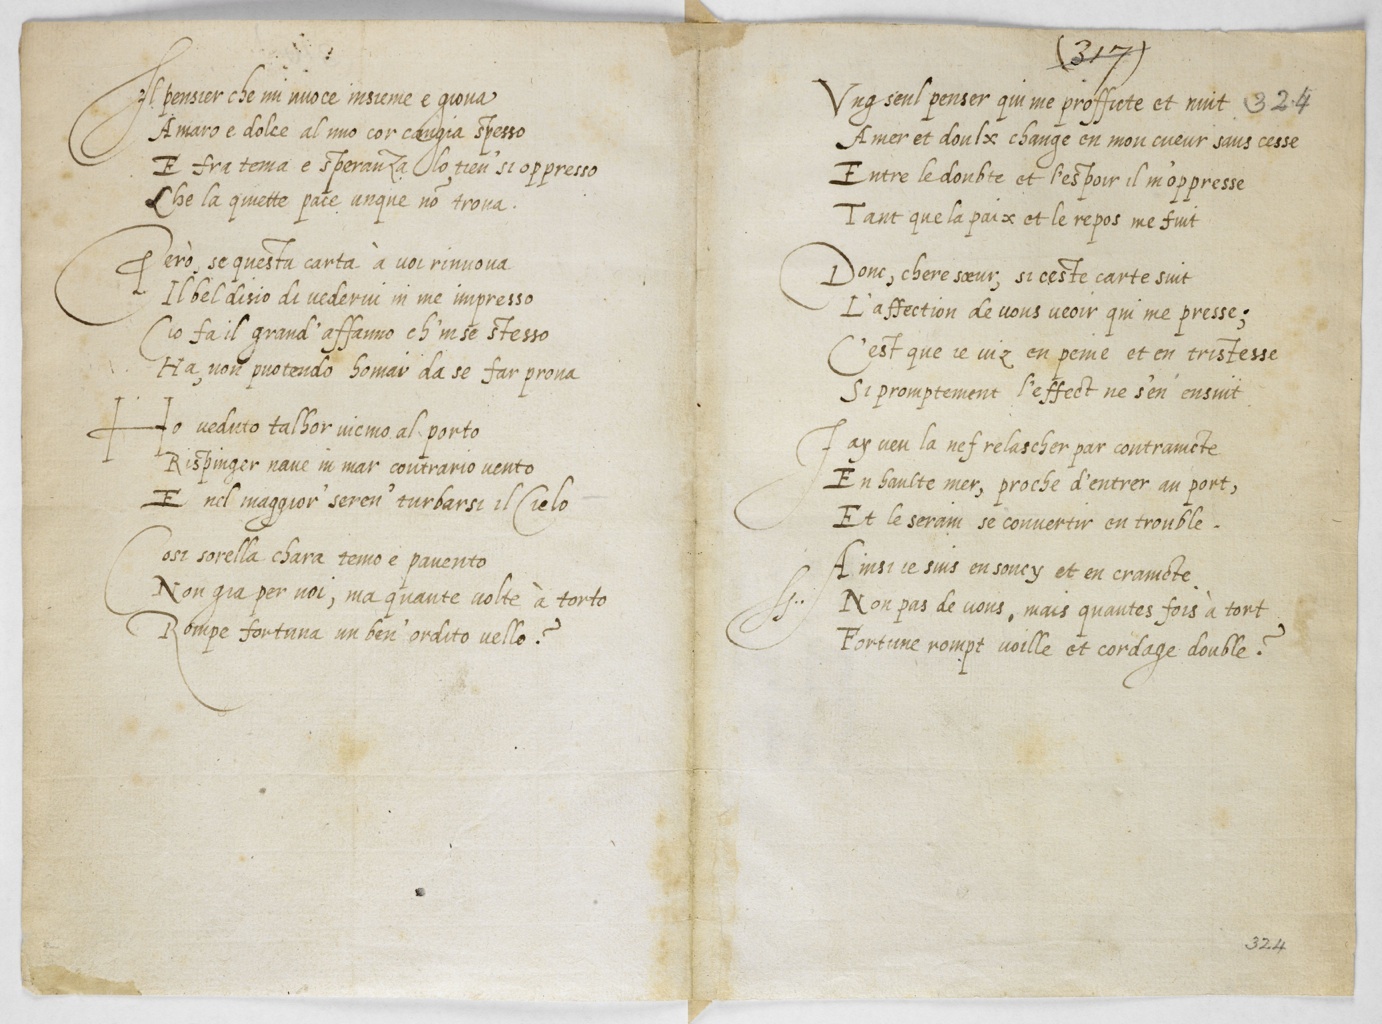 Il pensier che mi nuoce insieme e giova
Amaro e dolce al mio cor cangia spesso
E fra tema e speranza lo tien' si oppresso
Che la quiette pace unque nõ trova.
Però, se questa carta à voi rinuova
Il bel disio di vederui in me impresso
Cio fa il grand' affanno ch'in se stesso
Ha, non puotendo homai da se far prova
Ho veduto talhor vicino al porto
Rispinger nave in mar contrario vento
E nel maggior' seren' turbarsi il Cielo
Cosi sorella chara temo e pavento
Non gia per voi, ma quante volte à torto
Rompe fortuna un ben' ordito vello .?
(317)
Vng seul penser qui me profficte et nuit 324
Amer et doulx change en mon cueur sans cesse
Entre le doubte et l'espoir il m'oppresse
Tant que la paix et le repos me fuit
Donc, chere sœur, si ceste carte suit
L'affection de vous veoir qui me presse;
C'est que ie viz en peine et en tristesse
Si promptement l'effect ne s'en' ensuit
J ay veu la nef relascher par contraincte
En haulte mer, proche d'entrer au port,
Et le serain se convertir en trouble.
Ainsi ie suis en soucy et en craincte
Non pas de vous, mais quantes fois à tort
Fortune rompt voille et cordage double .?
324